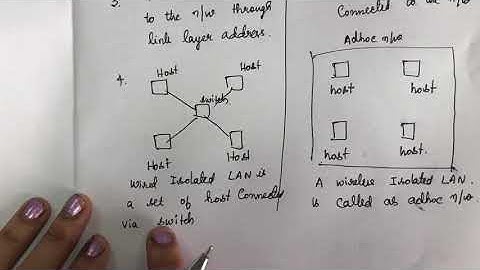 3.
to the n/w through
link layer address.
4.
Host
Host
switch
Host
Host
Wired Isolated LAN is
a set of host Connected
via switch
Connected to the n/w
Adhoc n/w
host
host
host
host.
A wireless Isolated LAN.
is called as adhoc n/w.